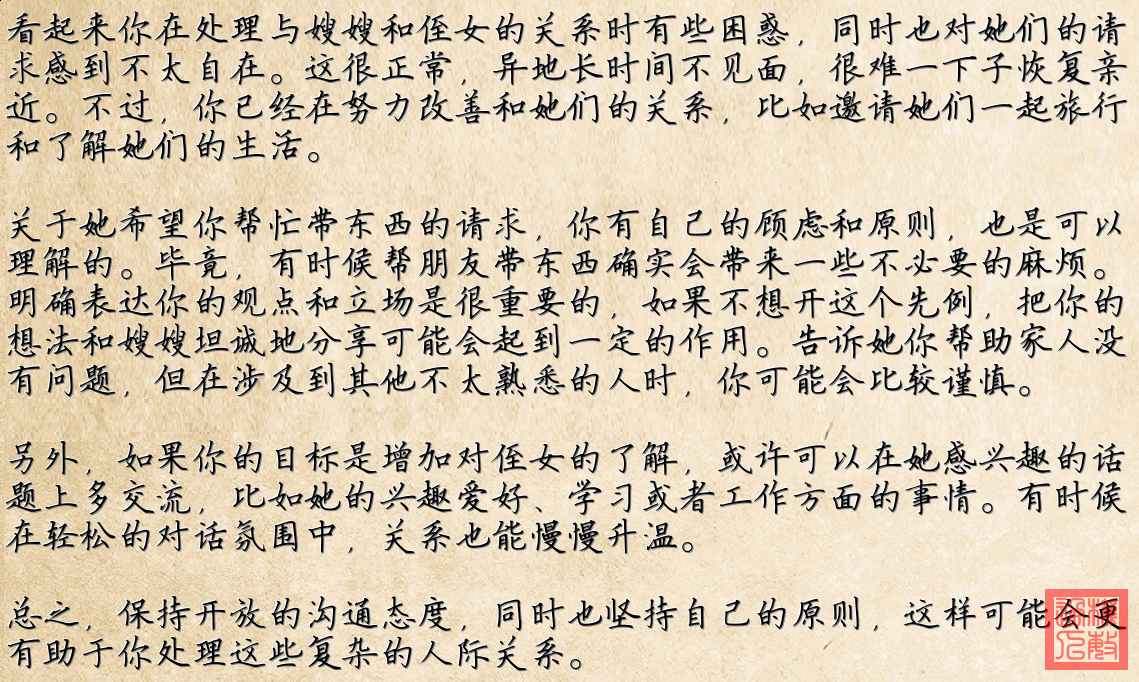 看起来你在处理与嫂嫂和侄女的关系时有些困惑，同时也对她们的请
求感到不太自在。这很正常，异地长时间不见面，很难一下子恢复亲
近。不过，你已经在努力改善和她们的关系，比如邀请她们一起旅行
和了解她们的生活。
关于她希望你帮忙带东西的请求，你有自己的顾虑和原则，也是可以
理解的。毕竟，有时候帮朋友带东西确实会带来一些不必要的麻烦。
明确表达你的观点和立场是很重要的，如果不想开这个先例，把你的
想法和嫂嫂坦诚地分享可能会起到一定的作用。告诉她你帮助家人没
有问题，但在涉及到其他不太熟悉的人时，你可能会比较谨慎。
另外，如果你的目标是增加对侄女的了解，或许可以在她感兴趣的话
题上多交流，比如她的兴趣爱好、学习或者工作方面的事情。有时候
在轻松的对话氛围中，关系也能慢慢升温。
总之，保持开放的沟通态度，同时也坚持自己的原则，这样可能会更
有助于你处理这些复杂的人际关系。